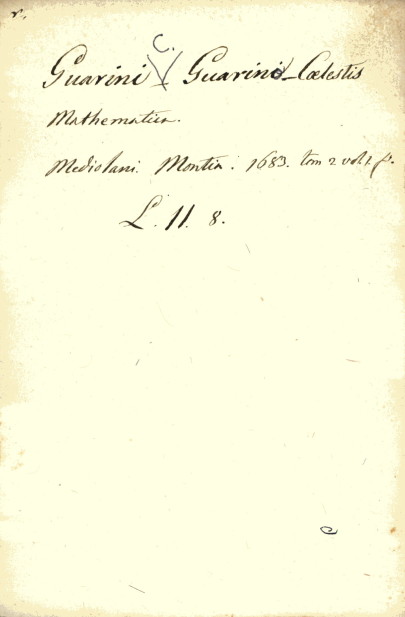 C.
Guarini Guarino Cœlestis
Mathematica.
Mediolani. Montia. 1683. tom 2 vol 1. f.o
L. 11. 8.